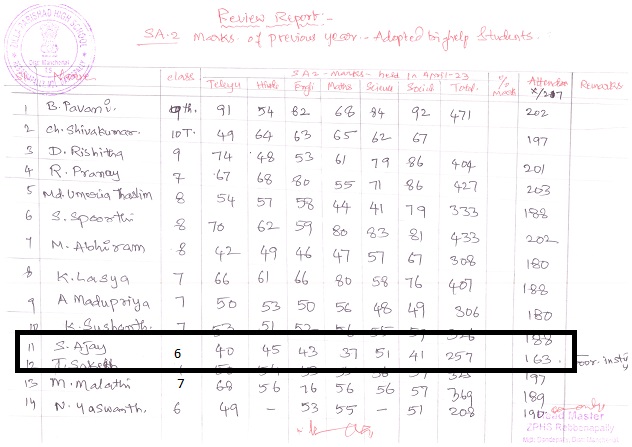 Review Report:-
SA-2 Marks of previous year.. Adopted bighelp Students.
ZILLA PARISHAD HIGH SCHOOL
Name class SA2 - Marks - held in April-23 Attendance Remarks
Telugu Hindi Engli Maths Science Social Total x/207
1 B. Pavani. 91 54 82 68 84 92 471 202
2 Ch. Shivakumar. 10 T. 49 64 63 65 62 67 197
3 D. Rishitha 9 74 48 53 61 79 86 404 201
4 R. Pranay 7 67 68 80 55 71 86 427 203
5 Md. Thaslim 8 54 57 58 44 41 79 333 188
6 S. Spoorthi 8 70 62 59 80 83 81 433 202
7 M. Abhiram 8 42 49 46 47 57 67 308 180
8 K. Lasya 7 66 61 66 80 58 76 407 188
9 A Madupriya 7 50 53 50 56 48 49 306 180
10 K. Sushanth. 7 188
11 S. Ajay 6 40 45 43 37 51 41 257 163. Poor in study
12 T. Saketh 197
13 M. Malathi 7 68 56 76 56 56 57 369 189
14 N. Yaswanth. 6 49 - 53 55 - 51 208 190
Head Master
ZPHS Rebbenapally